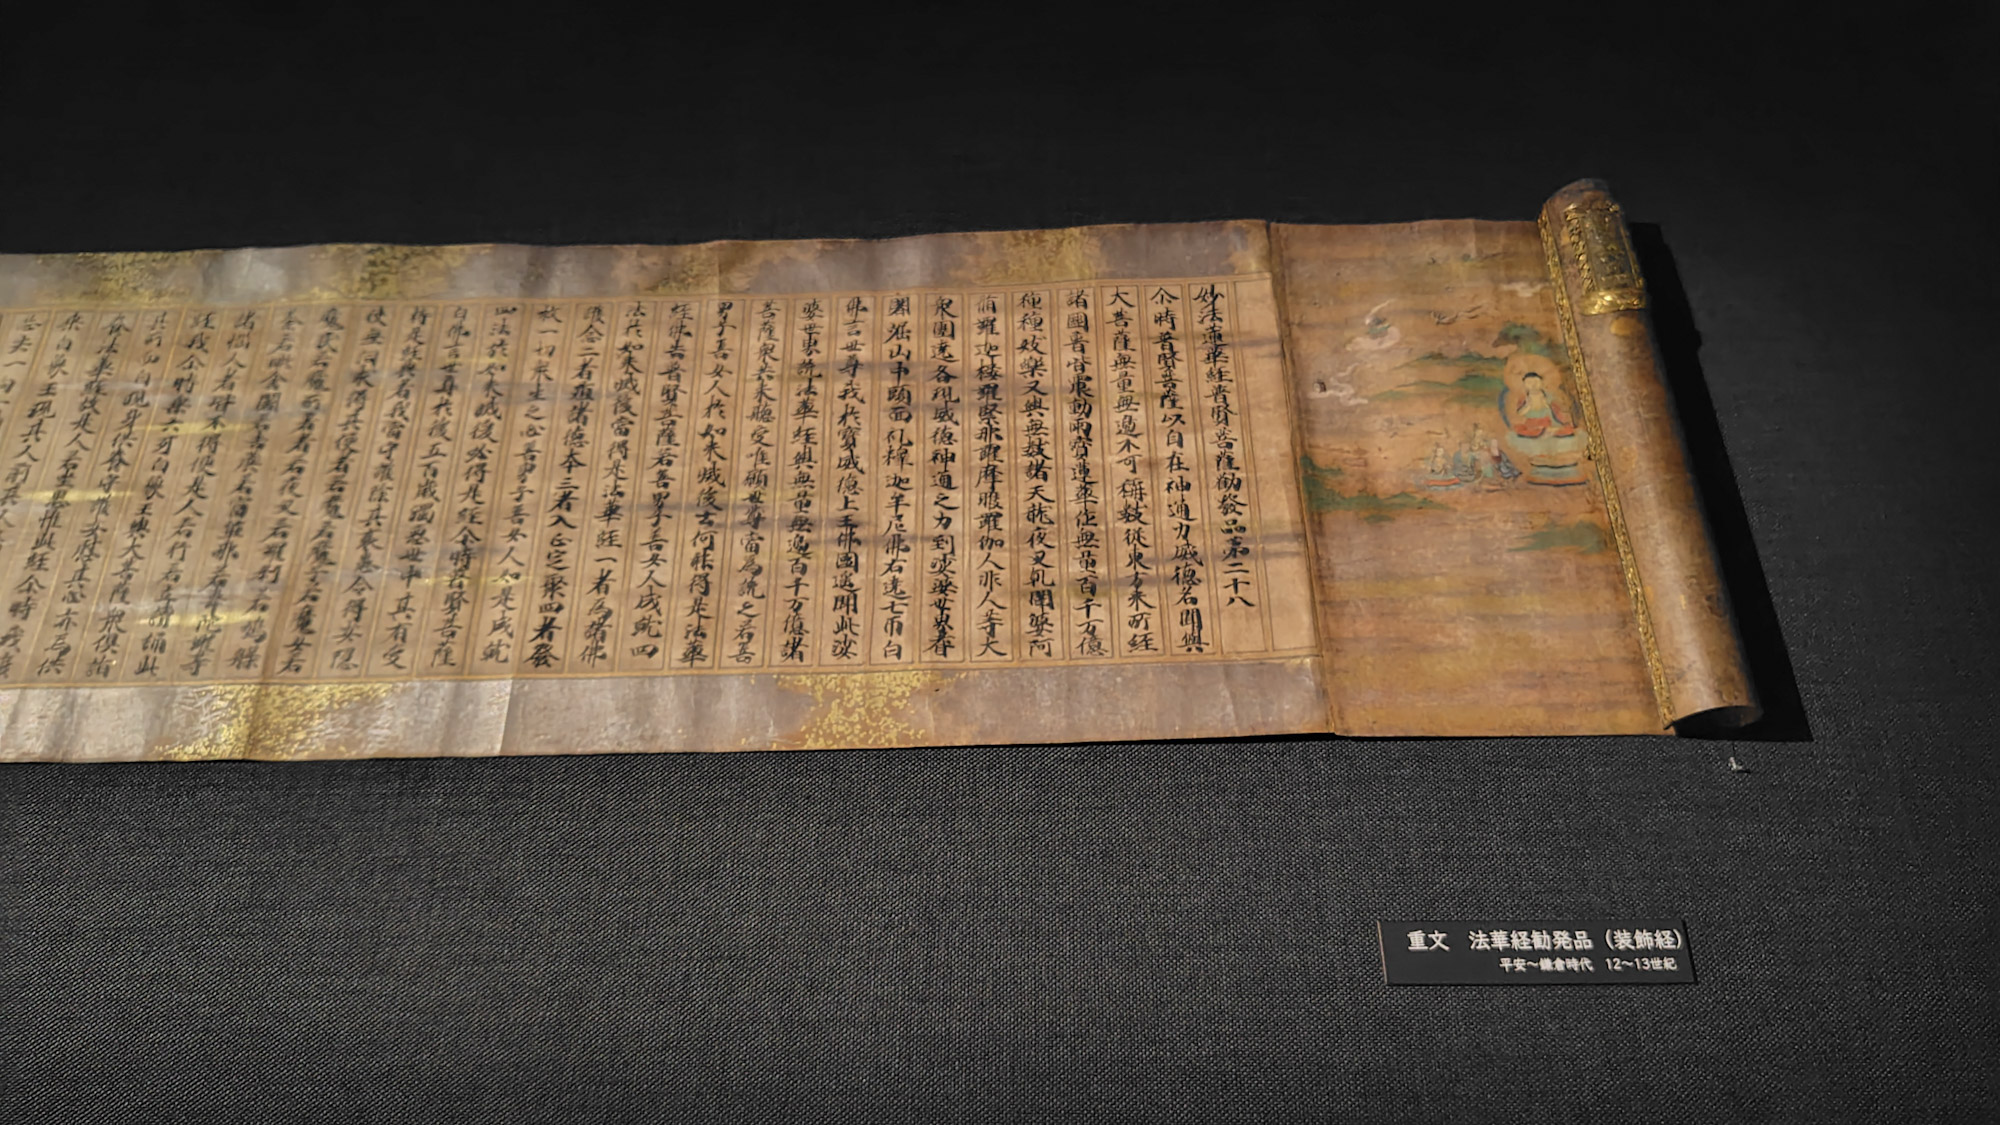 妙法蓮華經普賢菩薩勸發品第二十八
尒時普賢菩薩以自在神通力威德名聞與
大菩薩無量無邊不可稱數從東方來所經
諸國普皆震動雨寶蓮華作無量百千万億
種種妓樂又與無數諸天龍夜叉乹闥婆阿
脩羅迦樓羅緊那羅摩睺羅伽人非人等大
衆圍遶各現威德神通之力到娑婆世界耆
闍崛山中頭面礼釋迦牟尼佛右遶七帀白
佛言世尊我於寶威德上王佛國遥聞此娑
婆世界說法華經與無量無邊百千万億諸
菩薩衆共來聽受唯願世尊當為說之若善
男子善女人於如來滅後云何能得是法華
經佛告普賢菩薩若善男子善女人成就四
法於如來滅後當得是法華經一者為諸佛
護念二者殖諸德本三者入正定聚四者發
救一切衆生之心善男子善女人如是成就
四法於如來滅後必得是經尒時普賢菩薩
白佛言世尊於後五百歲濁惡世中其有受
持是經典者我當守護除其衰患令得安隱
使無伺求得其便者若魔若魔子若魔女若
魔民若為魔所著者若夜叉若羅剎若鳩槃
荼若毗舍闍若吉蔗若富單那若韋陀羅等
諸惱人者皆不得便是人若行若立讀誦此
經我尒時乘六牙白象王與大菩薩衆俱詣
其所而自現身供養守護安慰其心亦為供
養法華經故是人若坐思惟此經尒時我復
乘白象王現其人前其人
忘失一句
重文 法華経勧発品（装飾経）
平安～鎌倉時代 12～13世紀